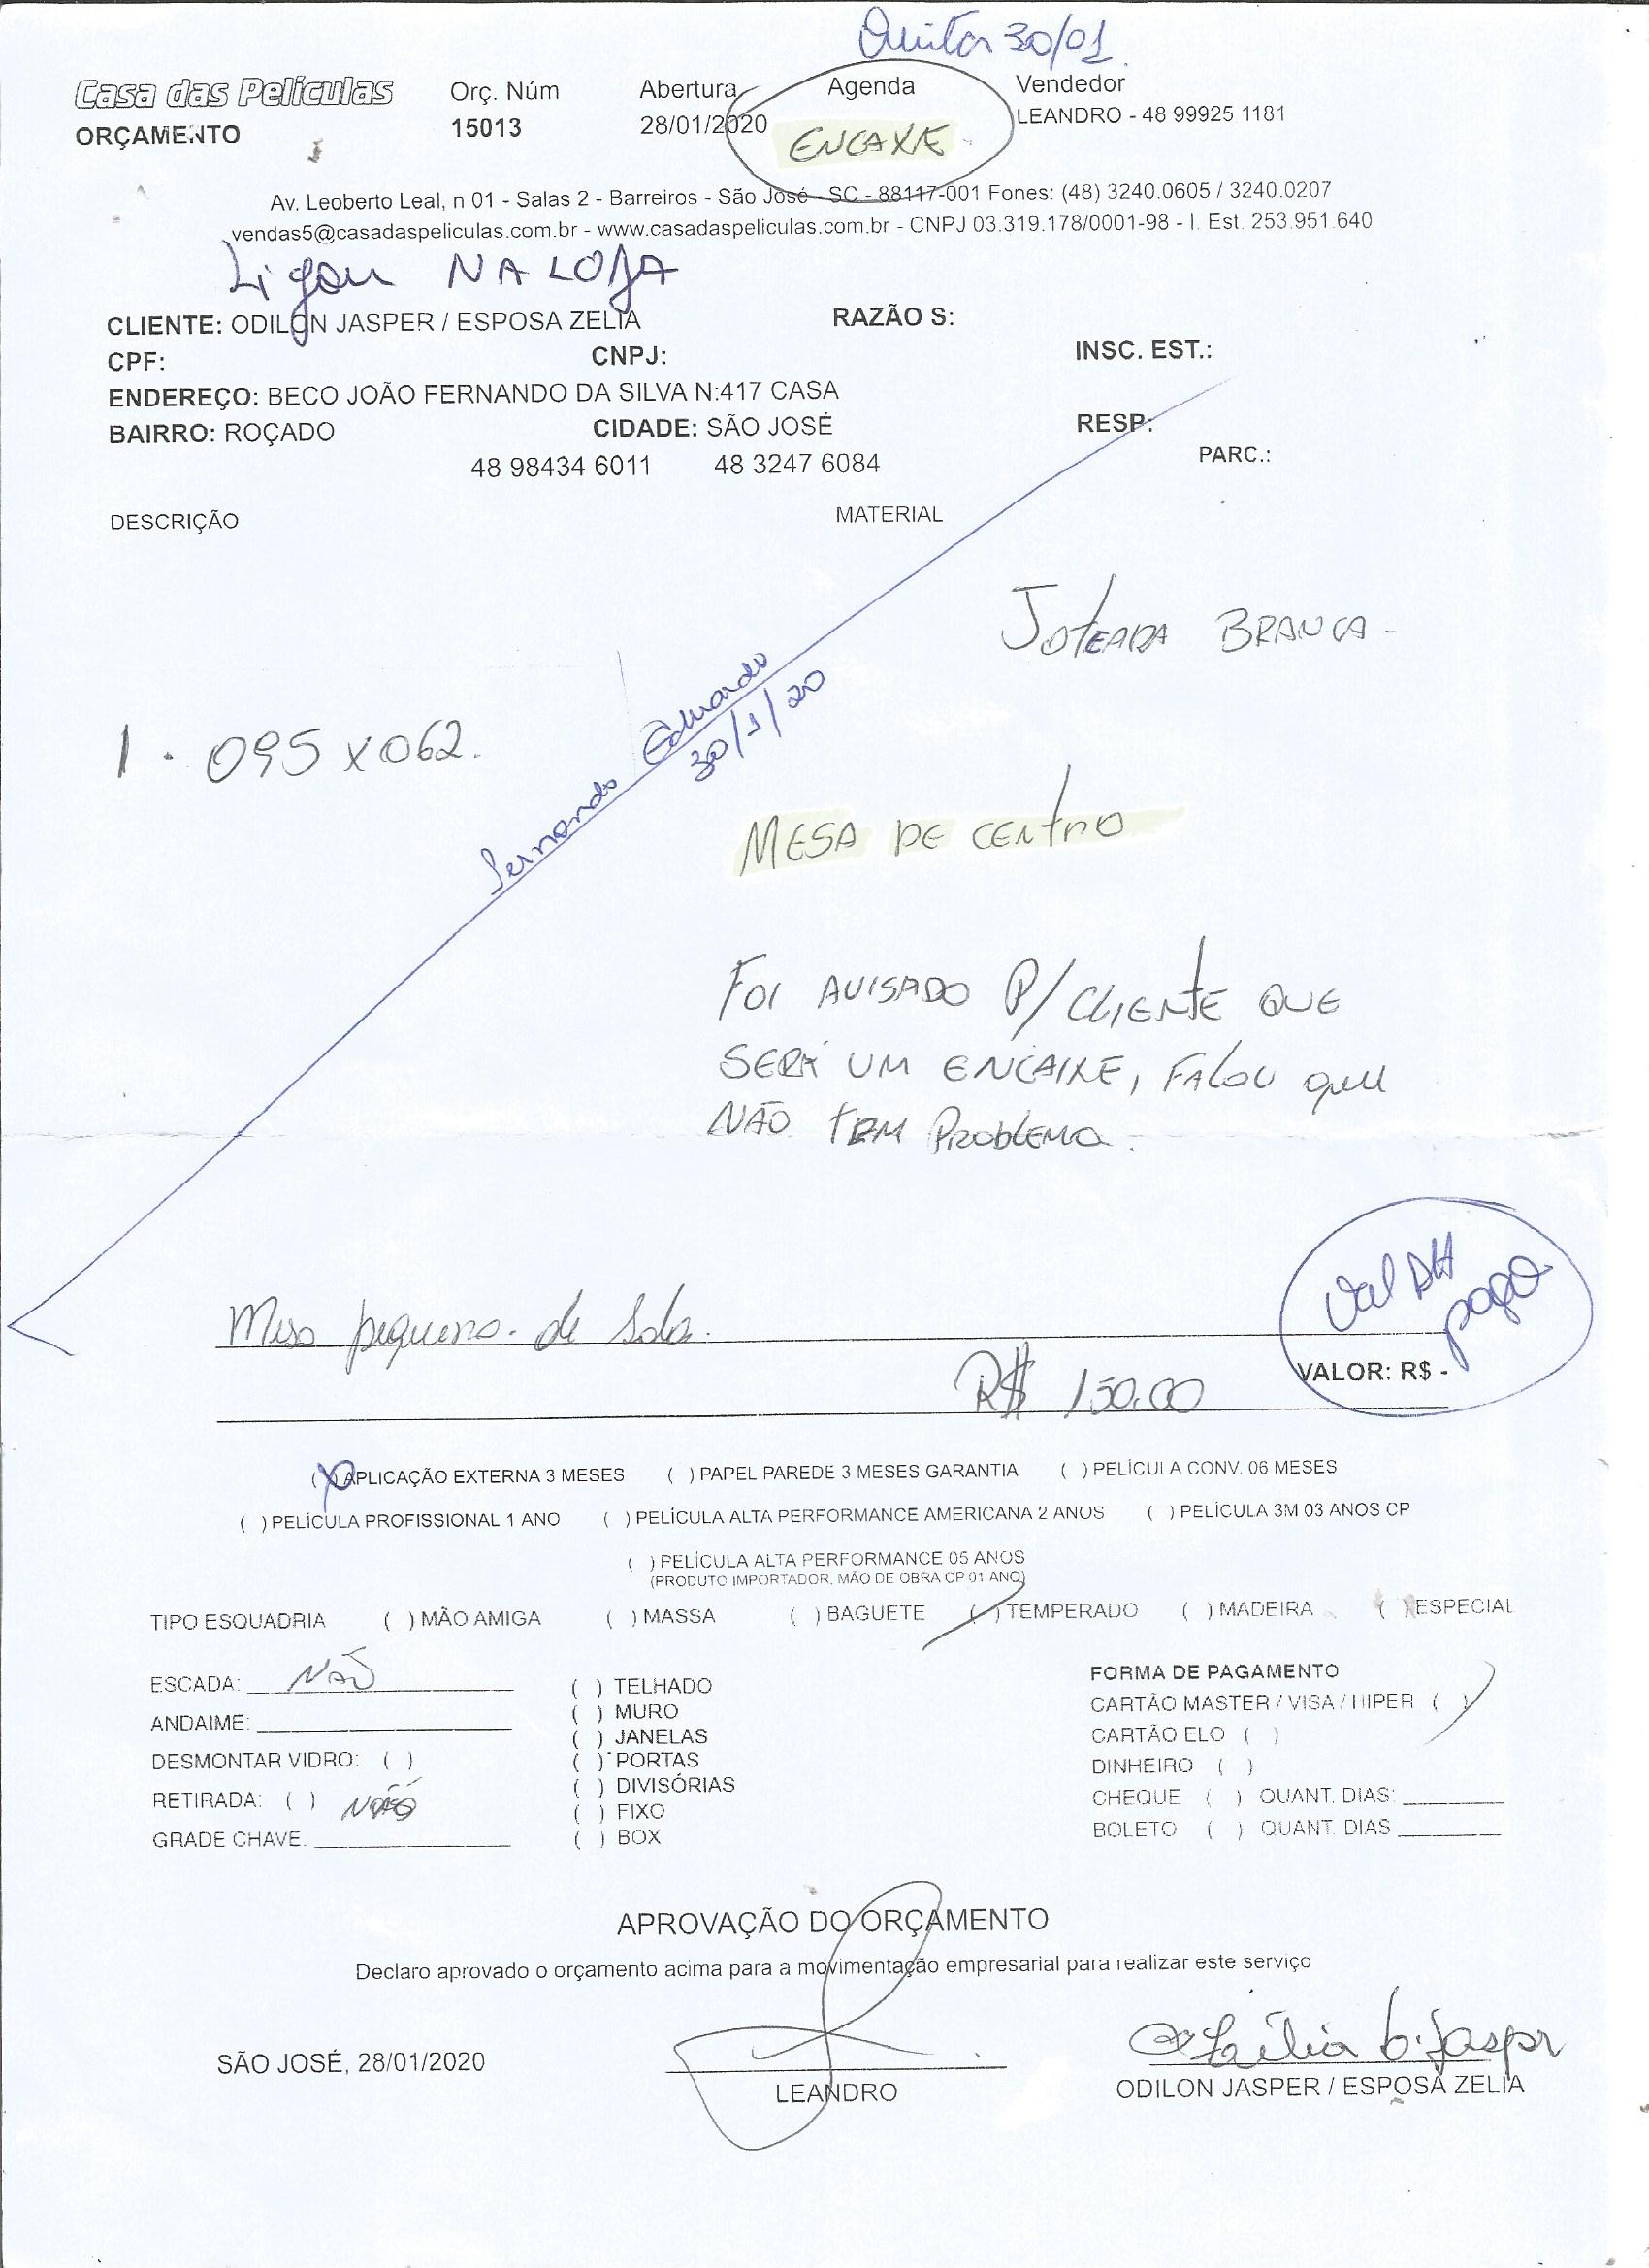 Quinta 30/01
Casa das Películas Orç. Núm Abertura Agenda Vendedor
ORÇAMENTO 15013 28/01/2020 ENCAXE LEANDRO - 48 99925 1181
Av. Leoberto Leal, n 01 - Salas 2 - Barreiros - São José - SC - 88117-001 Fones: (48) 3240.0605 / 3240.0207
vendas5@casadaspeliculas.com.br - www.casadaspeliculas.com.br - CNPJ 03.319.178/0001-98 - I. Est. 253.951.640
Ligou NA LOJA
CLIENTE: ODILON JASPER / ESPOSA ZELIA RAZÃO S:
CPF: CNPJ: INSC. EST.:
ENDEREÇO: BECO JOÃO FERNANDO DA SILVA N:417 CASA
BAIRRO: ROÇADO CIDADE: SÃO JOSÉ RESP:
48 98434 6011 48 3247 6084 PARC.:
DESCRIÇÃO MATERIAL
JOTEADA BRANCA -
Fernando Eduardo
30/1/20
1 . 095 x 062.
MESA DE CENTRO
FOI AVISADO P/ CLIENTE QUE
SERÁ UM ENCAIXE, FALOU QUE
NÃO TEM PROBLEMA.
Val DH
pago
Mesa pequena. de Sala.
R$ 150.00 VALOR: R$ -
( ) APLICAÇÃO EXTERNA 3 MESES ( ) PAPEL PAREDE 3 MESES GARANTIA ( ) PELÍCULA CONV. 06 MESES
( ) PELÍCULA PROFISSIONAL 1 ANO ( ) PELÍCULA ALTA PERFORMANCE AMERICANA 2 ANOS ( ) PELÍCULA 3M 03 ANOS CP
( ) PELÍCULA ALTA PERFORMANCE 05 ANOS
(PRODUTO IMPORTADOR, MÃO DE OBRA CP 01 ANO)
TIPO ESQUADRIA ( ) MÃO AMIGA ( ) MASSA ( ) BAGUETE ( ) TEMPERADO ( ) MADEIRA ( ) ESPECIAL
ESCADA: NÃO ( ) TELHADO FORMA DE PAGAMENTO
ANDAIME: ( ) MURO CARTÃO MASTER / VISA / HIPER ( )
( ) JANELAS CARTÃO ELO ( )
DESMONTAR VIDRO: ( ) ( ) PORTAS DINHEIRO ( )
RETIRADA: ( ) NÃO ( ) DIVISÓRIAS CHEQUE ( ) QUANT. DIAS:
( ) FIXO BOLETO ( ) QUANT. DIAS
GRADE CHAVE. ( ) BOX
APROVAÇÃO DO ORÇAMENTO
Declaro aprovado o orçamento acima para a movimentação empresarial para realizar este serviço
SÃO JOSÉ, 28/01/2020
LEANDRO ODILON JASPER / ESPOSA ZELIA